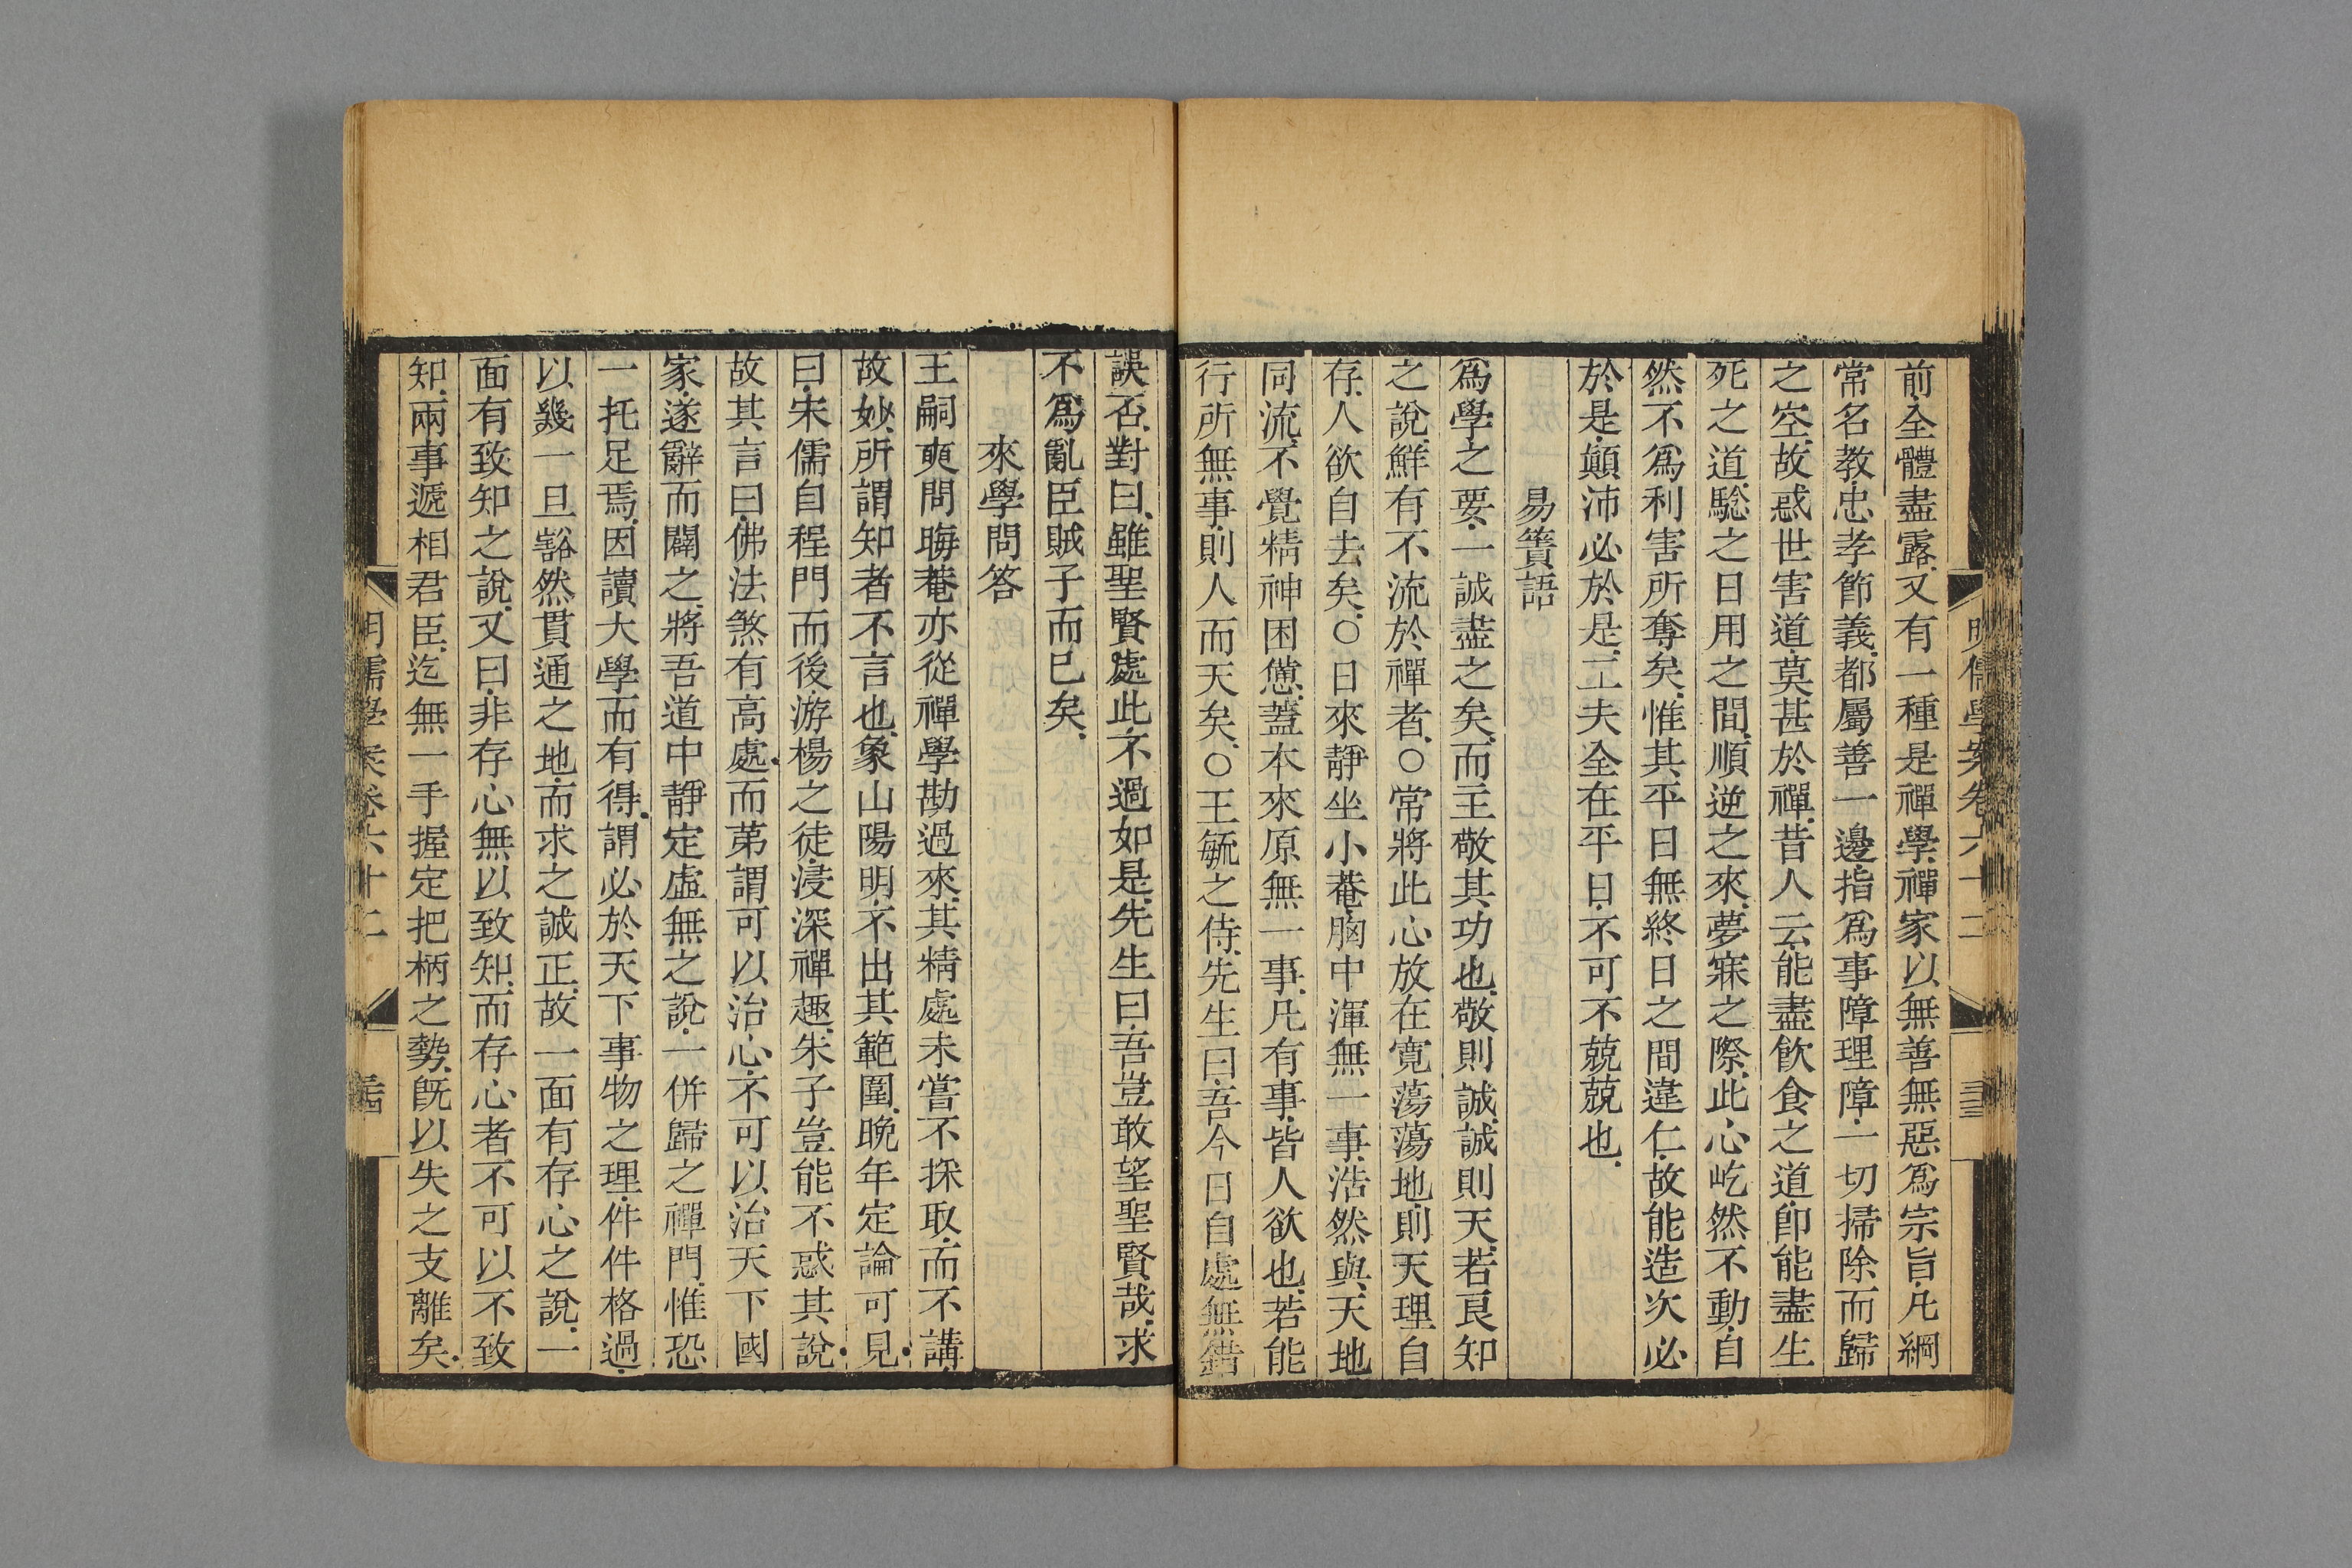 前全體盡露又有一種是禪學禪家以無善無惡爲宗旨凡綱
常名教忠孝節義都屬善一邊指爲事障理障一切掃除而歸
之空故惑世害道莫甚於禪昔人云能盡飲食之道卽能盡生
死之道驗之日用之間順逆之來夢寐之際此心屹然不動自
然不爲利害所奪矣惟其平日無終日之間違仁故能造次必
於是顛沛必於是工夫全在平日不可不兢兢也
易簀語
爲學之要一誠盡之矣而主敬其功也敬則誠誠則天若良知
之說鮮有不流於禪者○常將此心放在寬蕩蕩地則天理自
存人欲自去矣○日來靜坐小菴胸中渾無一事浩然與天地
同流不覺精神困憊蓋本來原無一事凡有事皆人欲也若能
行所無事則人而天矣○王毓之侍先生曰吾今日自處無錯
誤否對曰雖聖賢處此不過如是先生曰吾豈敢望聖賢哉求
不爲亂臣賊子而已矣
來學問答
王嗣奭問晦菴亦從禪學勘過來其精處未嘗不採取而不講
故妙所謂知者不言也象山陽明不出其範圍晚年定論可見
曰宋儒自程門而後游楊之徒浸深禪趣朱子豈能不惑其說
故其言曰佛法煞有高處而第謂可以治心不可以治天下國
家遂辭而闢之將吾道中靜定虛無之說一併歸之禪門惟恐
一托足焉因讀大學而有得謂必於天下事物之理件件格過
以幾一旦豁然貫通之地而求之誠正故一面有存心之說一
面有致知之說又曰非存心無以致知而存心者不可以不致
知兩事遞相君臣迄無一手握定把柄之勢旣以失之支離矣
明儒學案卷六十二